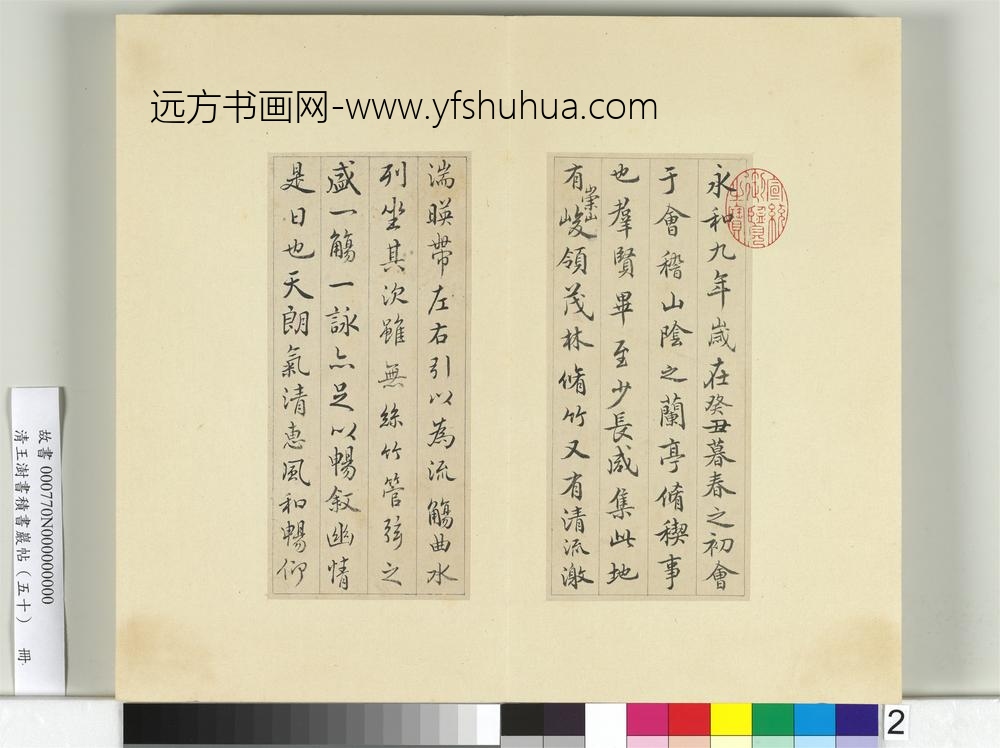 远方书画网-www.yfshuhua.com
永和九年歲在癸丑暮春之初會
于會稽山陰之蘭亭脩稧事
也羣賢畢至少長咸集此地
有崇山峻領茂林脩竹又有清流激
湍暎帶左右引以為流觴曲水
列坐其次雖無絲竹管弦之
盛一觴一詠亦足以暢叙幽情
是日也天朗氣清惠風和暢仰
宣統御覽之寶
故書 000770N000000000
清王澍書積書巖帖（五十） 冊
2